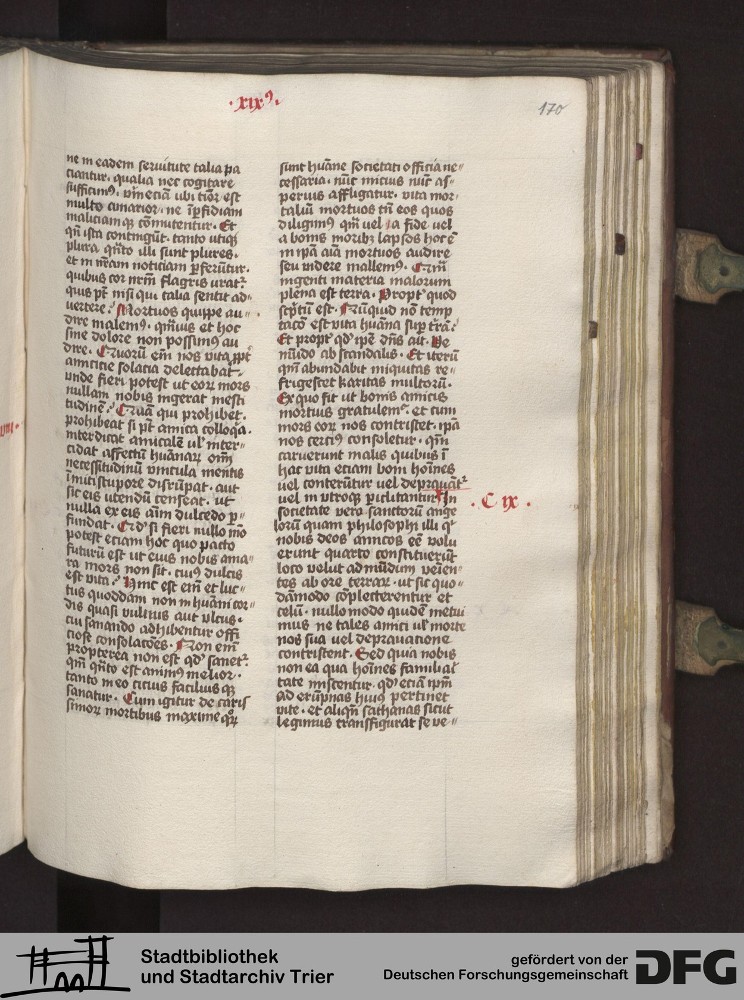 ·xix⁹·
170
ne in eadem seruitute talia pa
ciantur· qualia nec cogitare
sufficim⁹· vm̄eciā ubi tīor est
multo amarior· ne ī ꝑfidiam
maliciamqꝫ cōmutentur· Et
qn̄ ista contingūt· tanto utiqꝫ
plura· qn̄to illi sunt plures·
et in nr̄am noticiam ꝑferūtur·
quibus cor nrm̄ flagris uratᷣ
quis pt̄ nisi qui talia sentit ad-
uertere· Mortuos quipe au-
dire malem⁹· qm̄uis et hoc
sine dolore non possim⁹ au
dire· Quorū em̄ nos vita ꝓpt̄
amicitie solacia delectabat·
vnde fieri potest ut eorꝝ mors
nullam nobis ingerat mesti
tudinē· Quā qui prohibet·
prohibeat si pt̄ amica colloq̄a·
interdicat amicalē ul' inter-
cidat affectū huānarꝝ om̄
necessitudinū vincula mentis
īmiti stupore disrūpat· aut
sic eis utendū censeat· ut
nulla ex eis aīm dulcedo ꝑ-
fundat· Qd' si fieri nullo mō
potest etiam hoc quo pacto
futurū est ut eius nobis ama-
ra mors non sit· cui⁹ dulcis
est vita· Hinc est em̄ et luc-
tus quoddam non inhuāni cor-
dis quasi vulnus aut vlcus·
cui sanando adhibentur offi
ciose consolacōes· Non em̄
propterea non est qd' sanetᷣ·
qm̄ qn̄to est anim⁹ melior·
tanto in eo cicius facilius qꝫ
sanatur· Cum igitur de caris
simorꝝ mortibus maxime qrꝝ
sunt huāne societati officia ne-
cessaria· nūc micius nūc as-
perius affligatur· vita mor
taliū mortuos tn̄ eos quos
diligim⁹ qm̄ uel a fide uel
a bonis moribꝫ lapsos hoc ē
in ipā aīa mortuos audire
seu videre mallem⁹· Qua
ingenti materia malorum
plena est terra· Propt̄ quod
scptū est· Nūquid nō temp
tacō est vita huāna sup t̄rā·
Et propt̄ qd' ipē dn̄s ait· Ve
mūdo ab scandalis· Et iterū
qm̄ abundabit iniquitas re-
frigescet karitas multorū·
Ex quo fit ut bonis amicis
mortuis gratulem̄· et cum
mors eorꝝ nos contristet· ipā
nos cerci⁹ consoletur· qm̄
caruerunt malis quibus ī
hac vita etiam boni hoīnes
vel conterūtur vel deprauātᷣ
uel in vtroqꝫ ꝑiclitantur In
societate vero sanctorū ange
lorū quam philosophi illi qⁱ
nobis deos amicos eē volu
erunt quarto constituerūt
loco velut ad mūdum veien-
tes ab orbe terrarꝝ· ut sic quo-
dāmodo cōplecterentur et
celū· nullo modo quidē metui
mus ne tales amici ul' morte
nos sua vel deprauacione
contristent· Sed quia nobis
non ea qua hoīnes familiaʳⁱ
tate miscentur· qd' eciā ipm̄
ad erūpnas hui⁹ pertinet
vite· et aliqn̄ sathanas sicut
legimus transfigurat se ve-
·C ix·
Stadtbibliothek
und Stadtarchiv Trier
gefördert von der
Deutschen Forschungsgemeinschaft
DFG